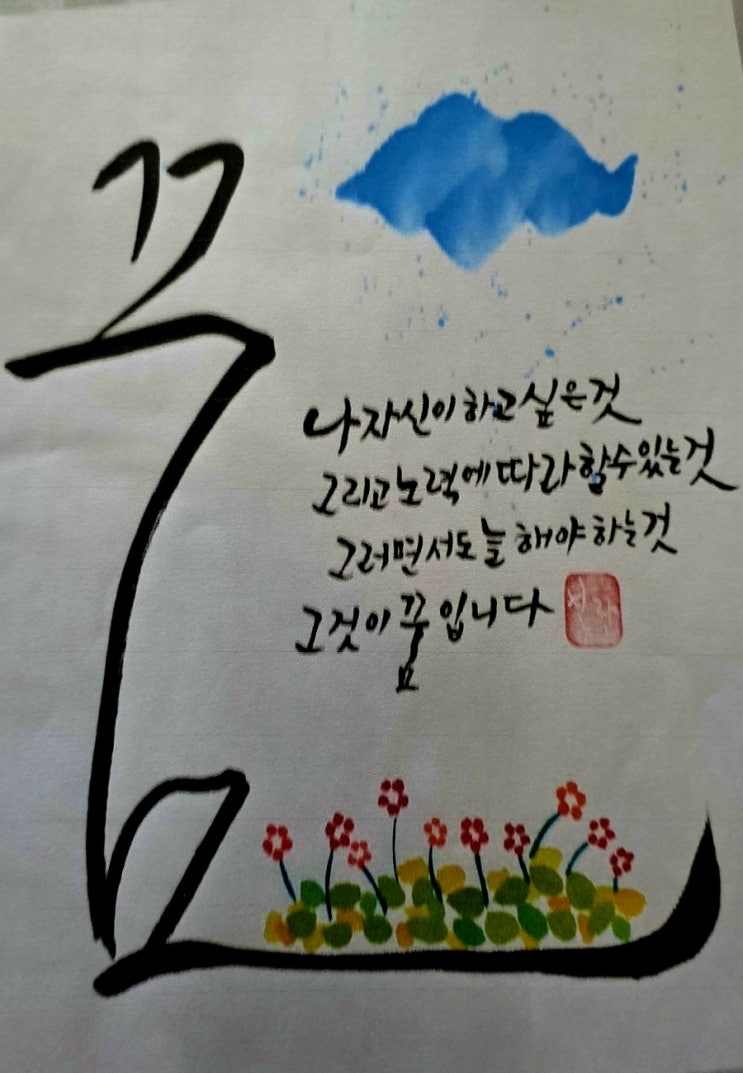 꿈
나 자신이 하고 싶은 것
그리고 노력에 따라 할 수 있는 것
그러면서도 늘 해야 하는 것
그것이 꿈입니다